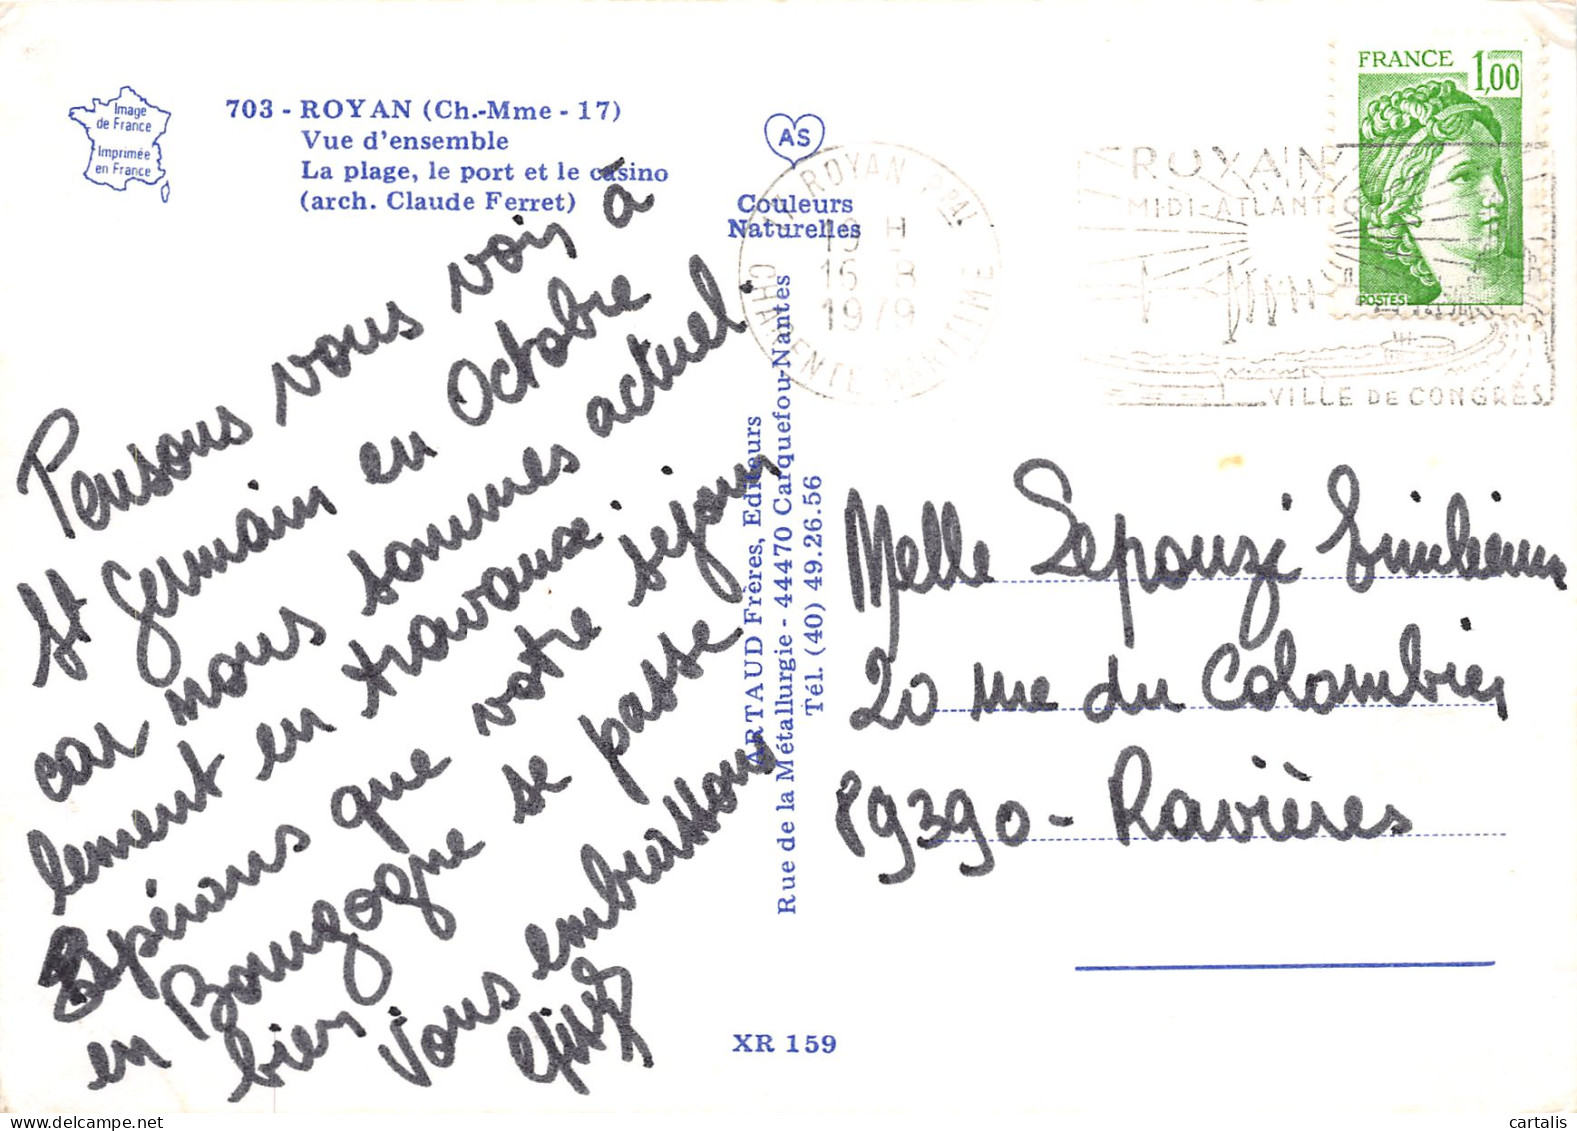 Image
de France
Imprimée
en France
703 - ROYAN (Ch.-Mme - 17)
Vue d'ensemble
La plage, le port et le casino
(arch. Claude Ferret)
AS
Couleurs
Naturelles
Pensons vous voir à
St Germain en Octobre
car nous sommes actuel-
lement en travaux.
Espérons que votre séjour
en Bourgogne se passe
bien.
Vous embrassons
ARTAUD Frères, Editeurs
Rue de la Métallurgie - 44470 Carquefou-Nantes
Tél. (40) 49.26.56
XR 159
17 ROYAN PPAL
19 H
16 8
1979
CHARENTE MARITIME
ROYAN
MIDI-ATLANTIQUE
VILLE DE CONGRÈS
FRANCE 1,00
POSTES
Melle Sepouzi
20 rue du Colombier
89390 - Ravières
cartalis